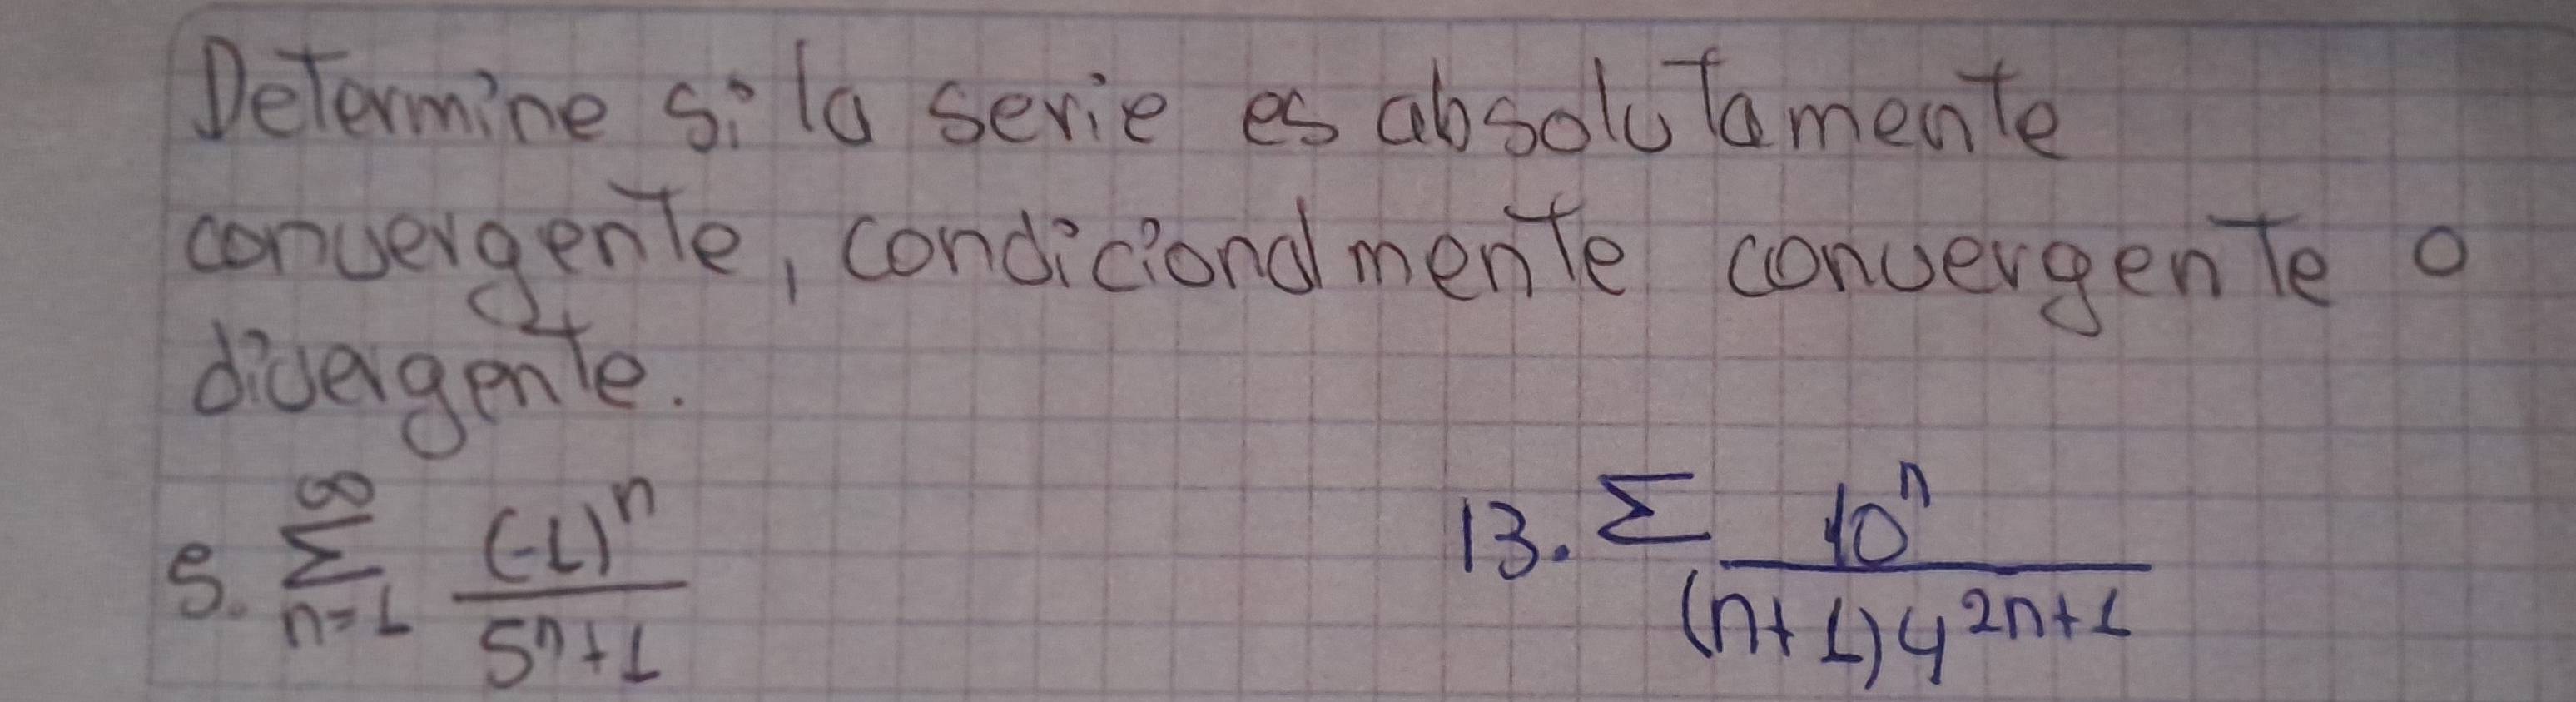 Determine si la serie es absolutamente
convergente, condicionalmente convergente o
divergente.
5. ∞ Σ n=1 (-1)^n / 5^n+1
13. Σ 10^n / (n+1)4^{2n+1}